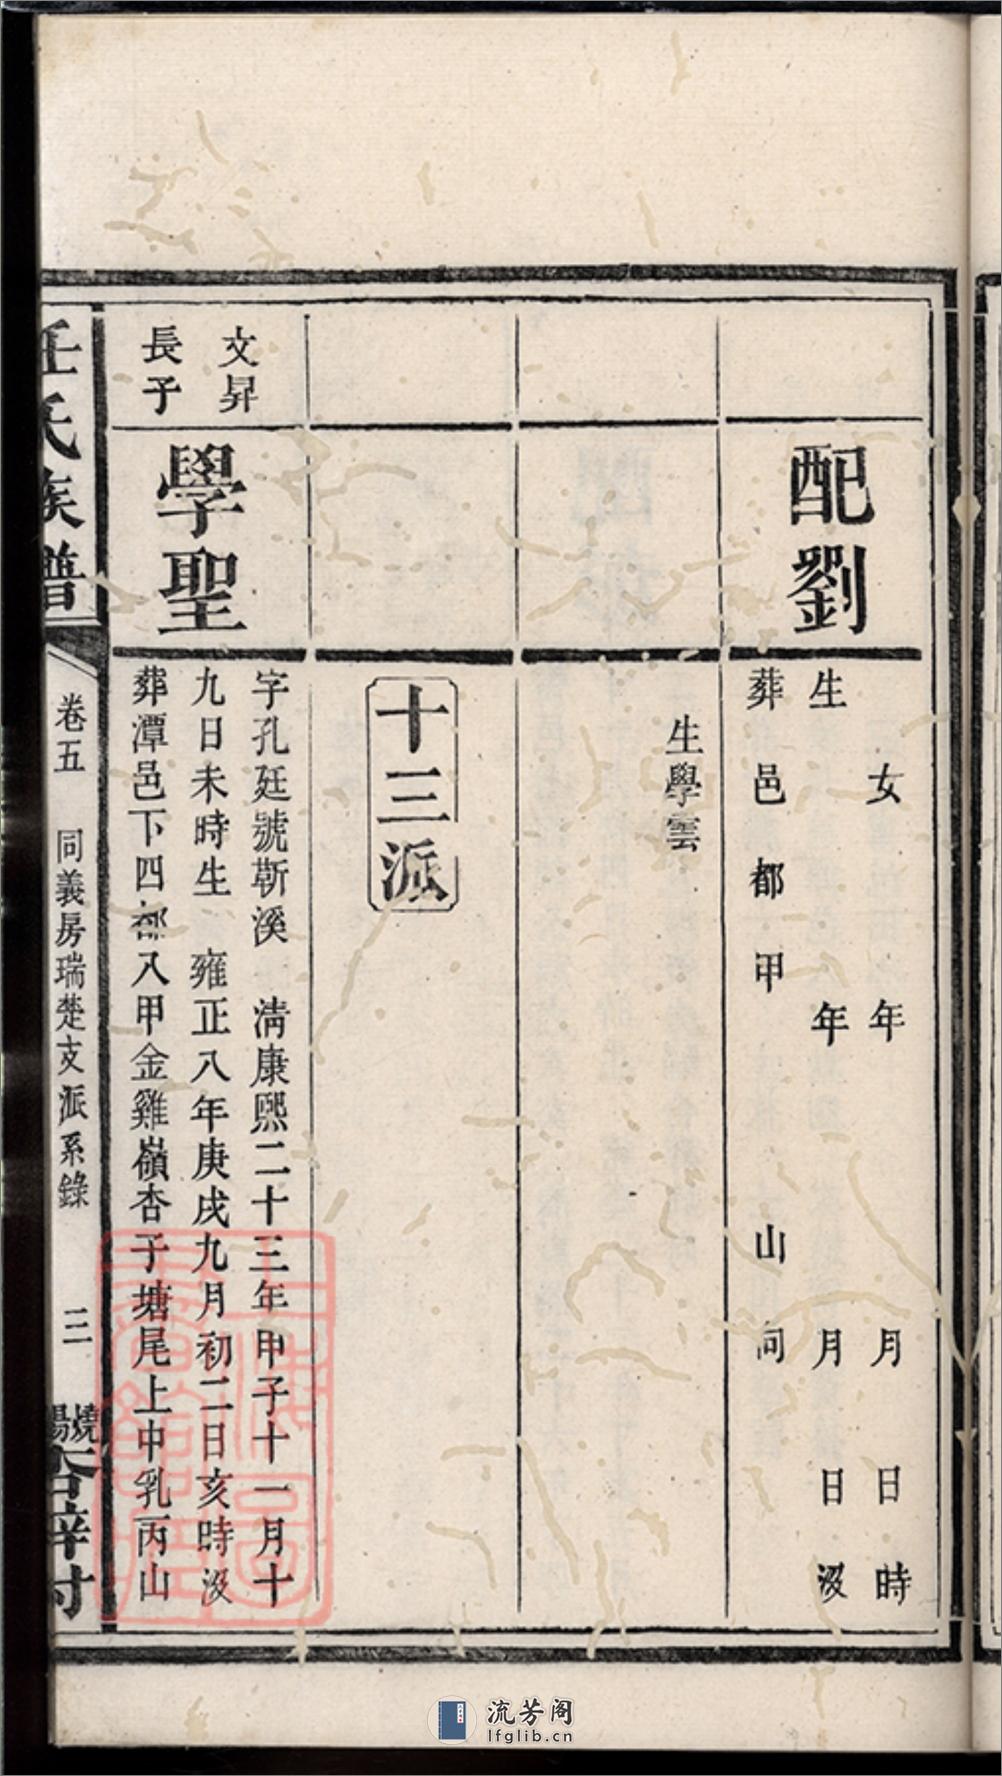 配劉
女 年 月 日 時
生 年 月 日 歿
葬 邑 都 甲 山 向
生學雲
十三派
文昇
長子
學聖
字孔廷號靳溪 清康熙二十三年甲子十一月十
九日未時生 雍正八年庚戌九月初二日亥時歿
葬潭邑下四都八甲金雞嶺杏子塘尾上中乳丙山
任氏族譜
卷五 同義房瑞楚支派系錄 三
流芳阁
lfglib.cn